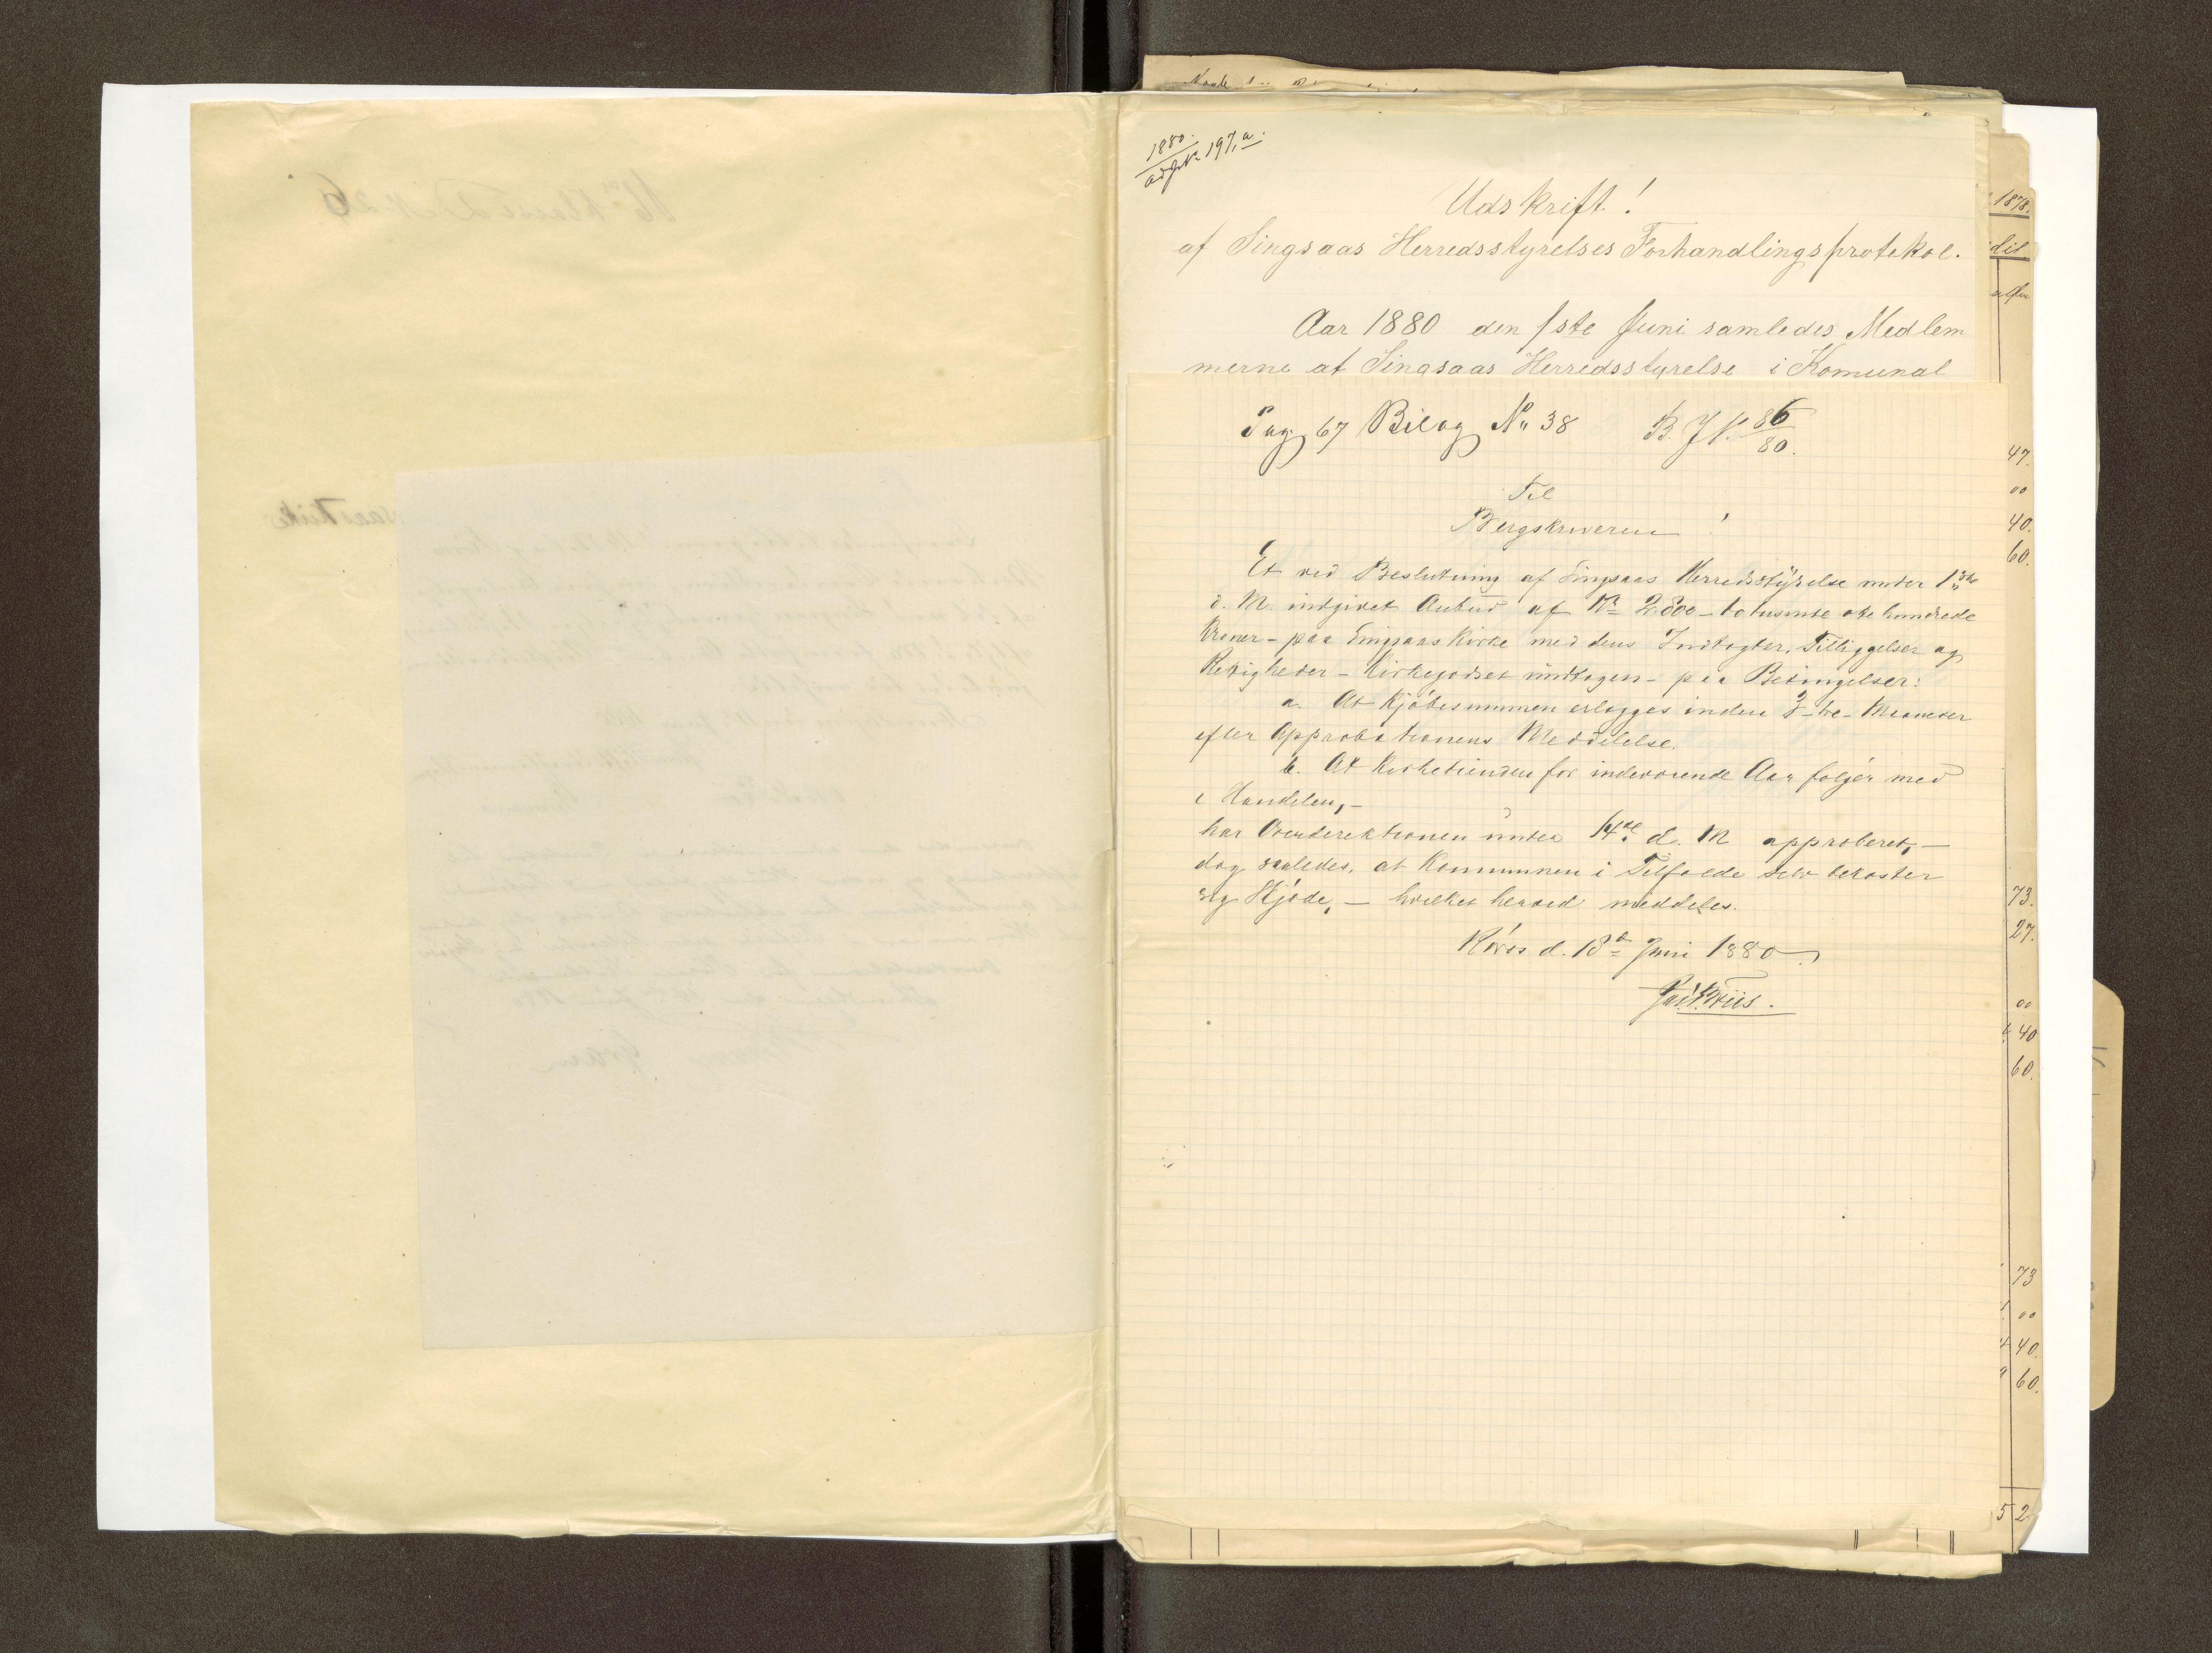 1880.
adg No 197, a.
Udskrift!
af Singsaas Herredsstyrelses Forhandlingsprotokol.
Aar 1880 den 1ste Juni samledes Medlem
merne af Singsaas Herredsstyrelse i Komunal
Pag 67 Bilag No 38 B. J. 86
80.
Til
Bergskriveren!
Et ved Beslutning af Singsaas Herredsstyrelse under 1ste
d. M. indgivet Anbud af Kr 2800 - totusinde otte hundrede
Kroner - paa Singsaas Kirke med dens Indtægter, Tilliggelser og
Retigheder - Kirkegodset undtagen - paa Betingelser:
a. At Kjøbesummen erlægges inden 3 - tre - Maaneder
efter Approbationens Meddelelse.
b. At Kirketienden for indeværende Aar følger med
i Handelen, -
har Overdirektionen under 14de d. M approberet, -
dog saaledes, at Kommunen i Tilfælde selv bekoster
sig Skjøde, - hvilket herved meddeles.
Røros d. 18de Juni 1880
1878.
47.
00
40.
60.
73.
27.
00
40
60.
73
00
40.
60.
52